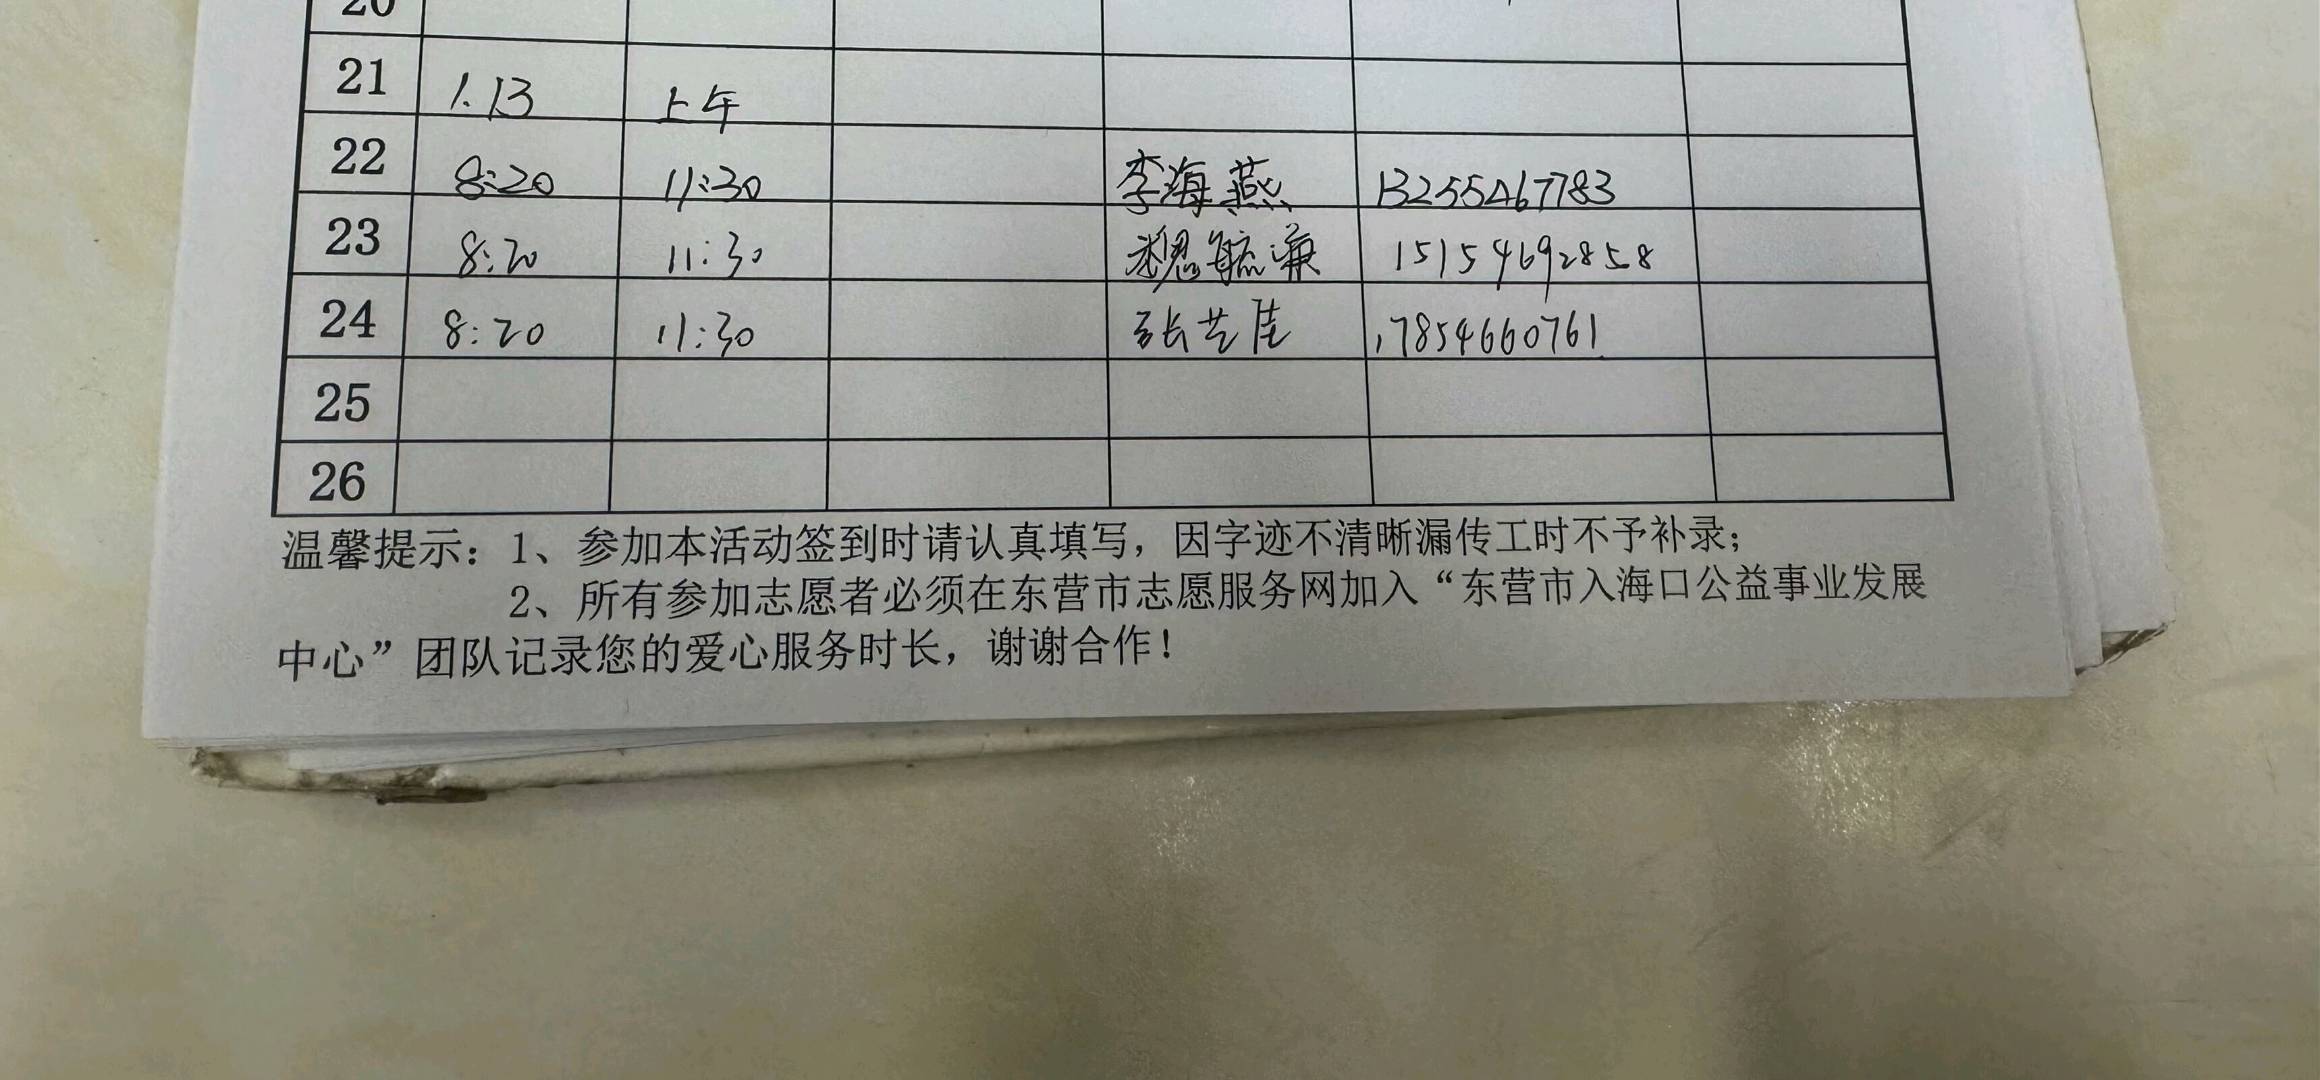 20
21 1.13 上午
22 8:20 11:30 李海燕 13255467783
23 8:20 11:30 魏毓 15154692858
24 8:20 11:30 张艺佳 17854660761
25
26
温馨提示：1、参加本活动签到时请认真填写，因字迹不清晰漏传工时不予补录；
2、所有参加志愿者必须在东营市志愿服务网加入“东营市入海口公益事业发展
中心”团队记录您的爱心服务时长，谢谢合作！